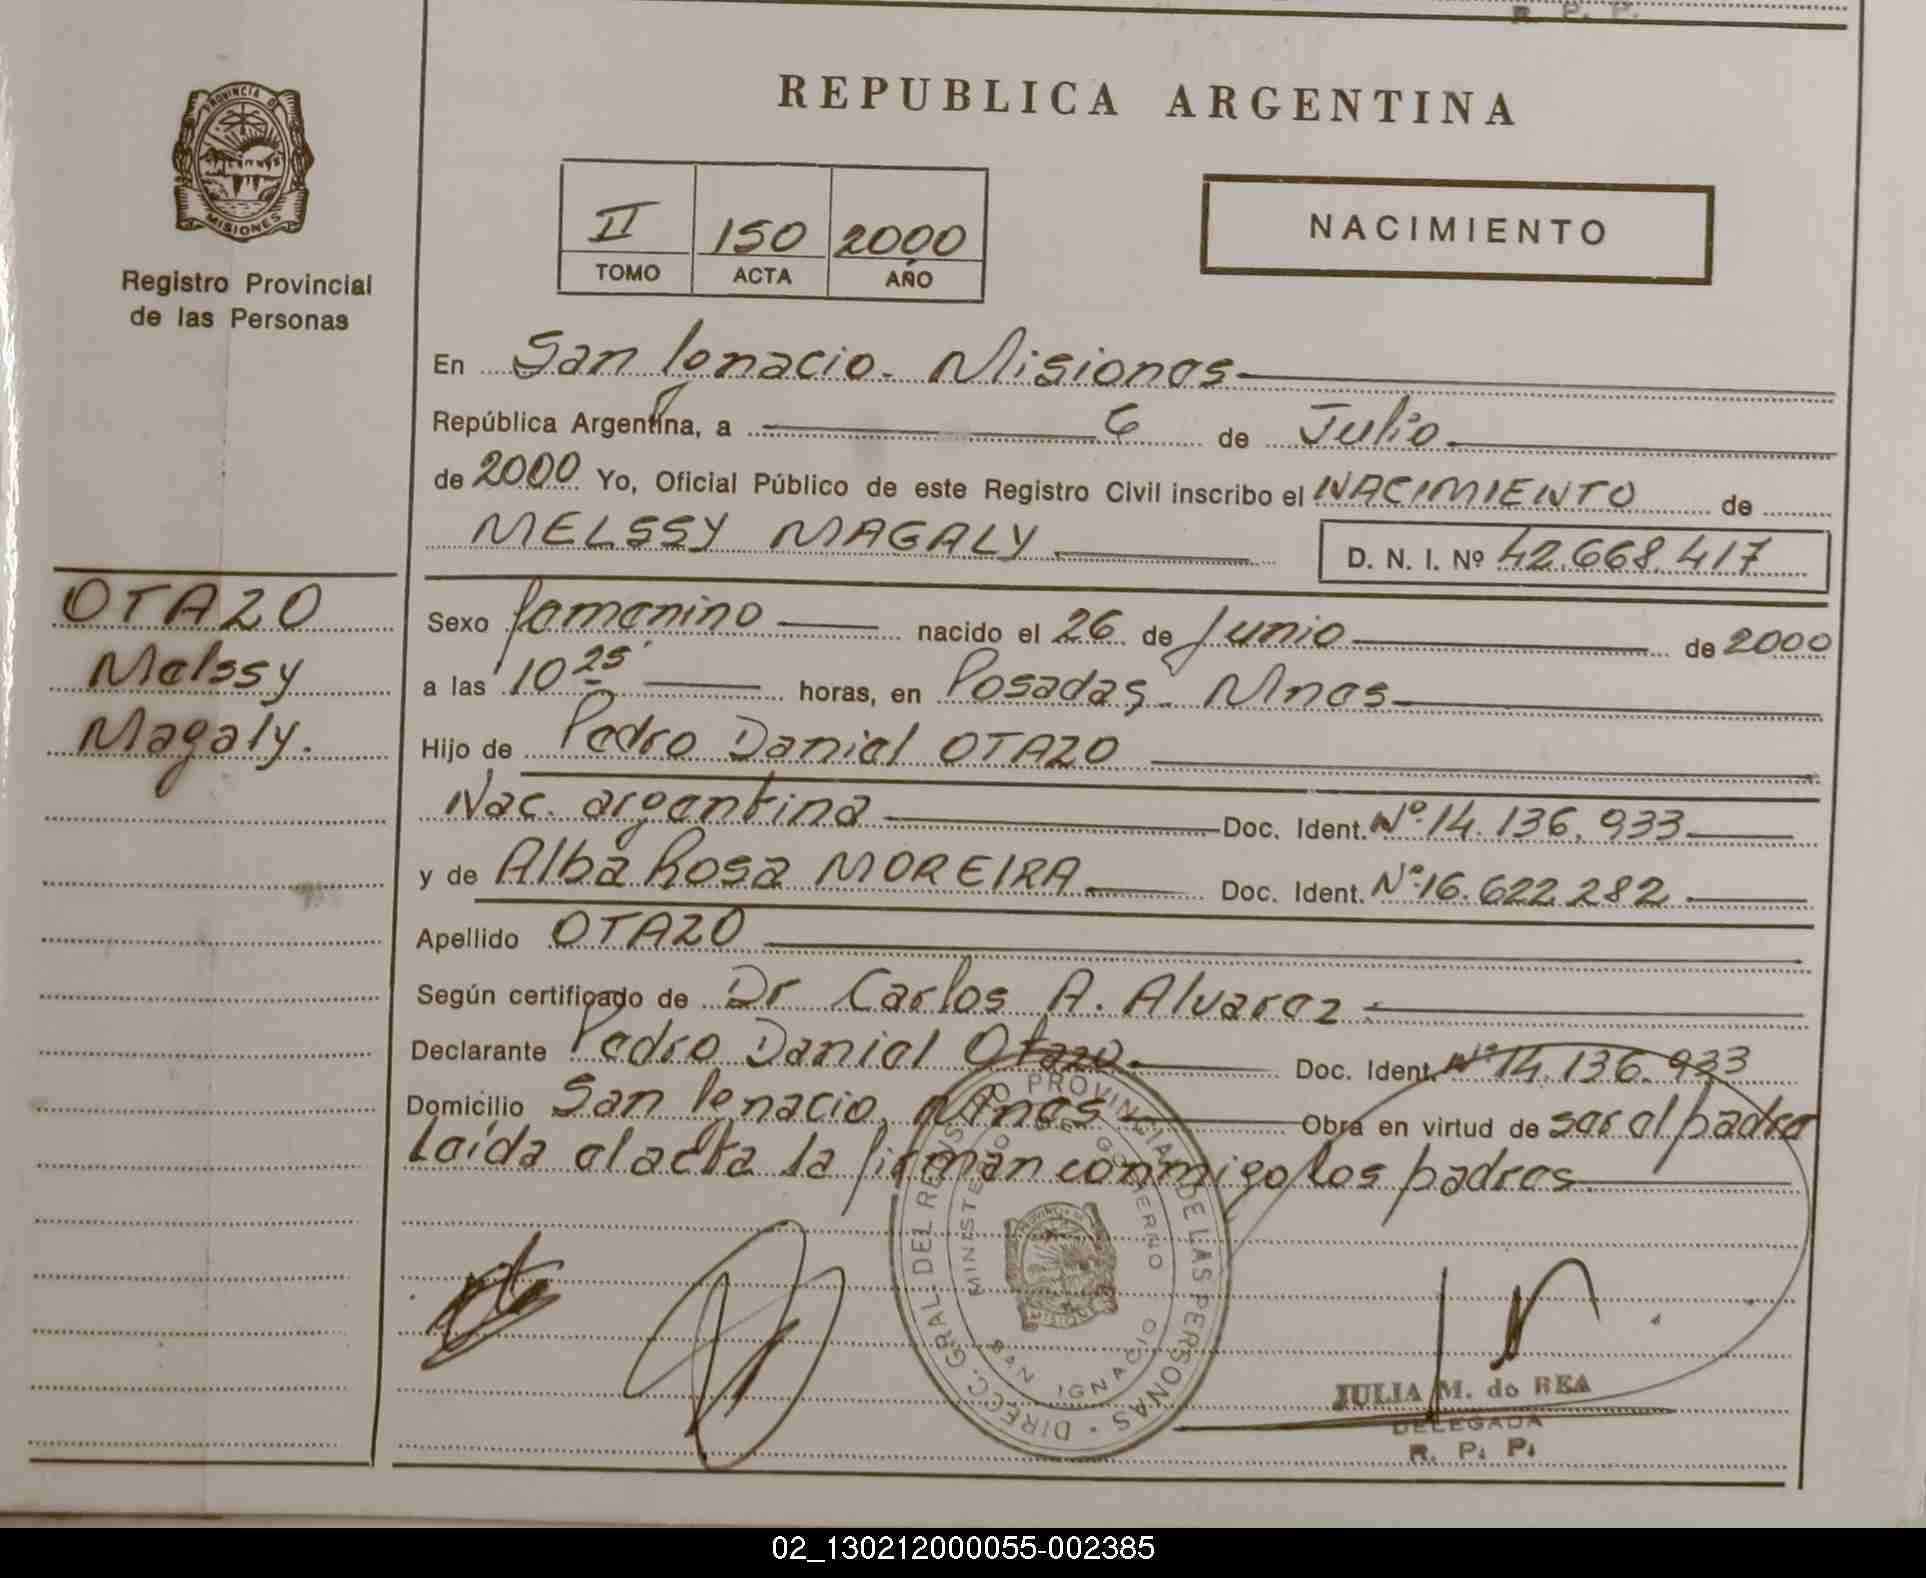 R. P. P.
PROVINCIA D
MISIONES
Registro Provincial
de las Personas
REPUBLICA ARGENTINA
II 150 2000
TOMO ACTA AÑO
NACIMIENTO
En San Ignacio. Misiones
República Argentina, a 6 de Julio
de 2000 Yo, Oficial Público de este Registro Civil inscribo el NACIMIENTO de
MELSSY MAGALY D. N. I. Nº 42.668.417
OTAZO
Melssy
Magaly.
Sexo femenino nacido el 26 de Junio de 2000
a las 10 25' horas, en Posadas, Mnes
Hijo de Pedro Daniel OTAZO
Nac. argentina Doc. Ident. Nº 14.136.933
y de Alba Rosa MOREIRA Doc. Ident. Nº 16.622.282
Apellido OTAZO
Según certificado de Dr Carlos A. Alvarez
Declarante Pedro Daniel Otazo. Doc. Ident. Nº 14.136.933
Domicilio San Ignacio, Mnes Obra en virtud de ser el padre
Leída el acta la firman conmigo los padres.
DIRECC. GRAL. DEL REGISTRO PROVINCIAL DE LAS PERSONAS
MINISTERIO DE GOBIERNO
SAN IGNACIO
MISIONES
JULIA M. do REA
DELEGADA
R. P. P.
02_130212000055-002385